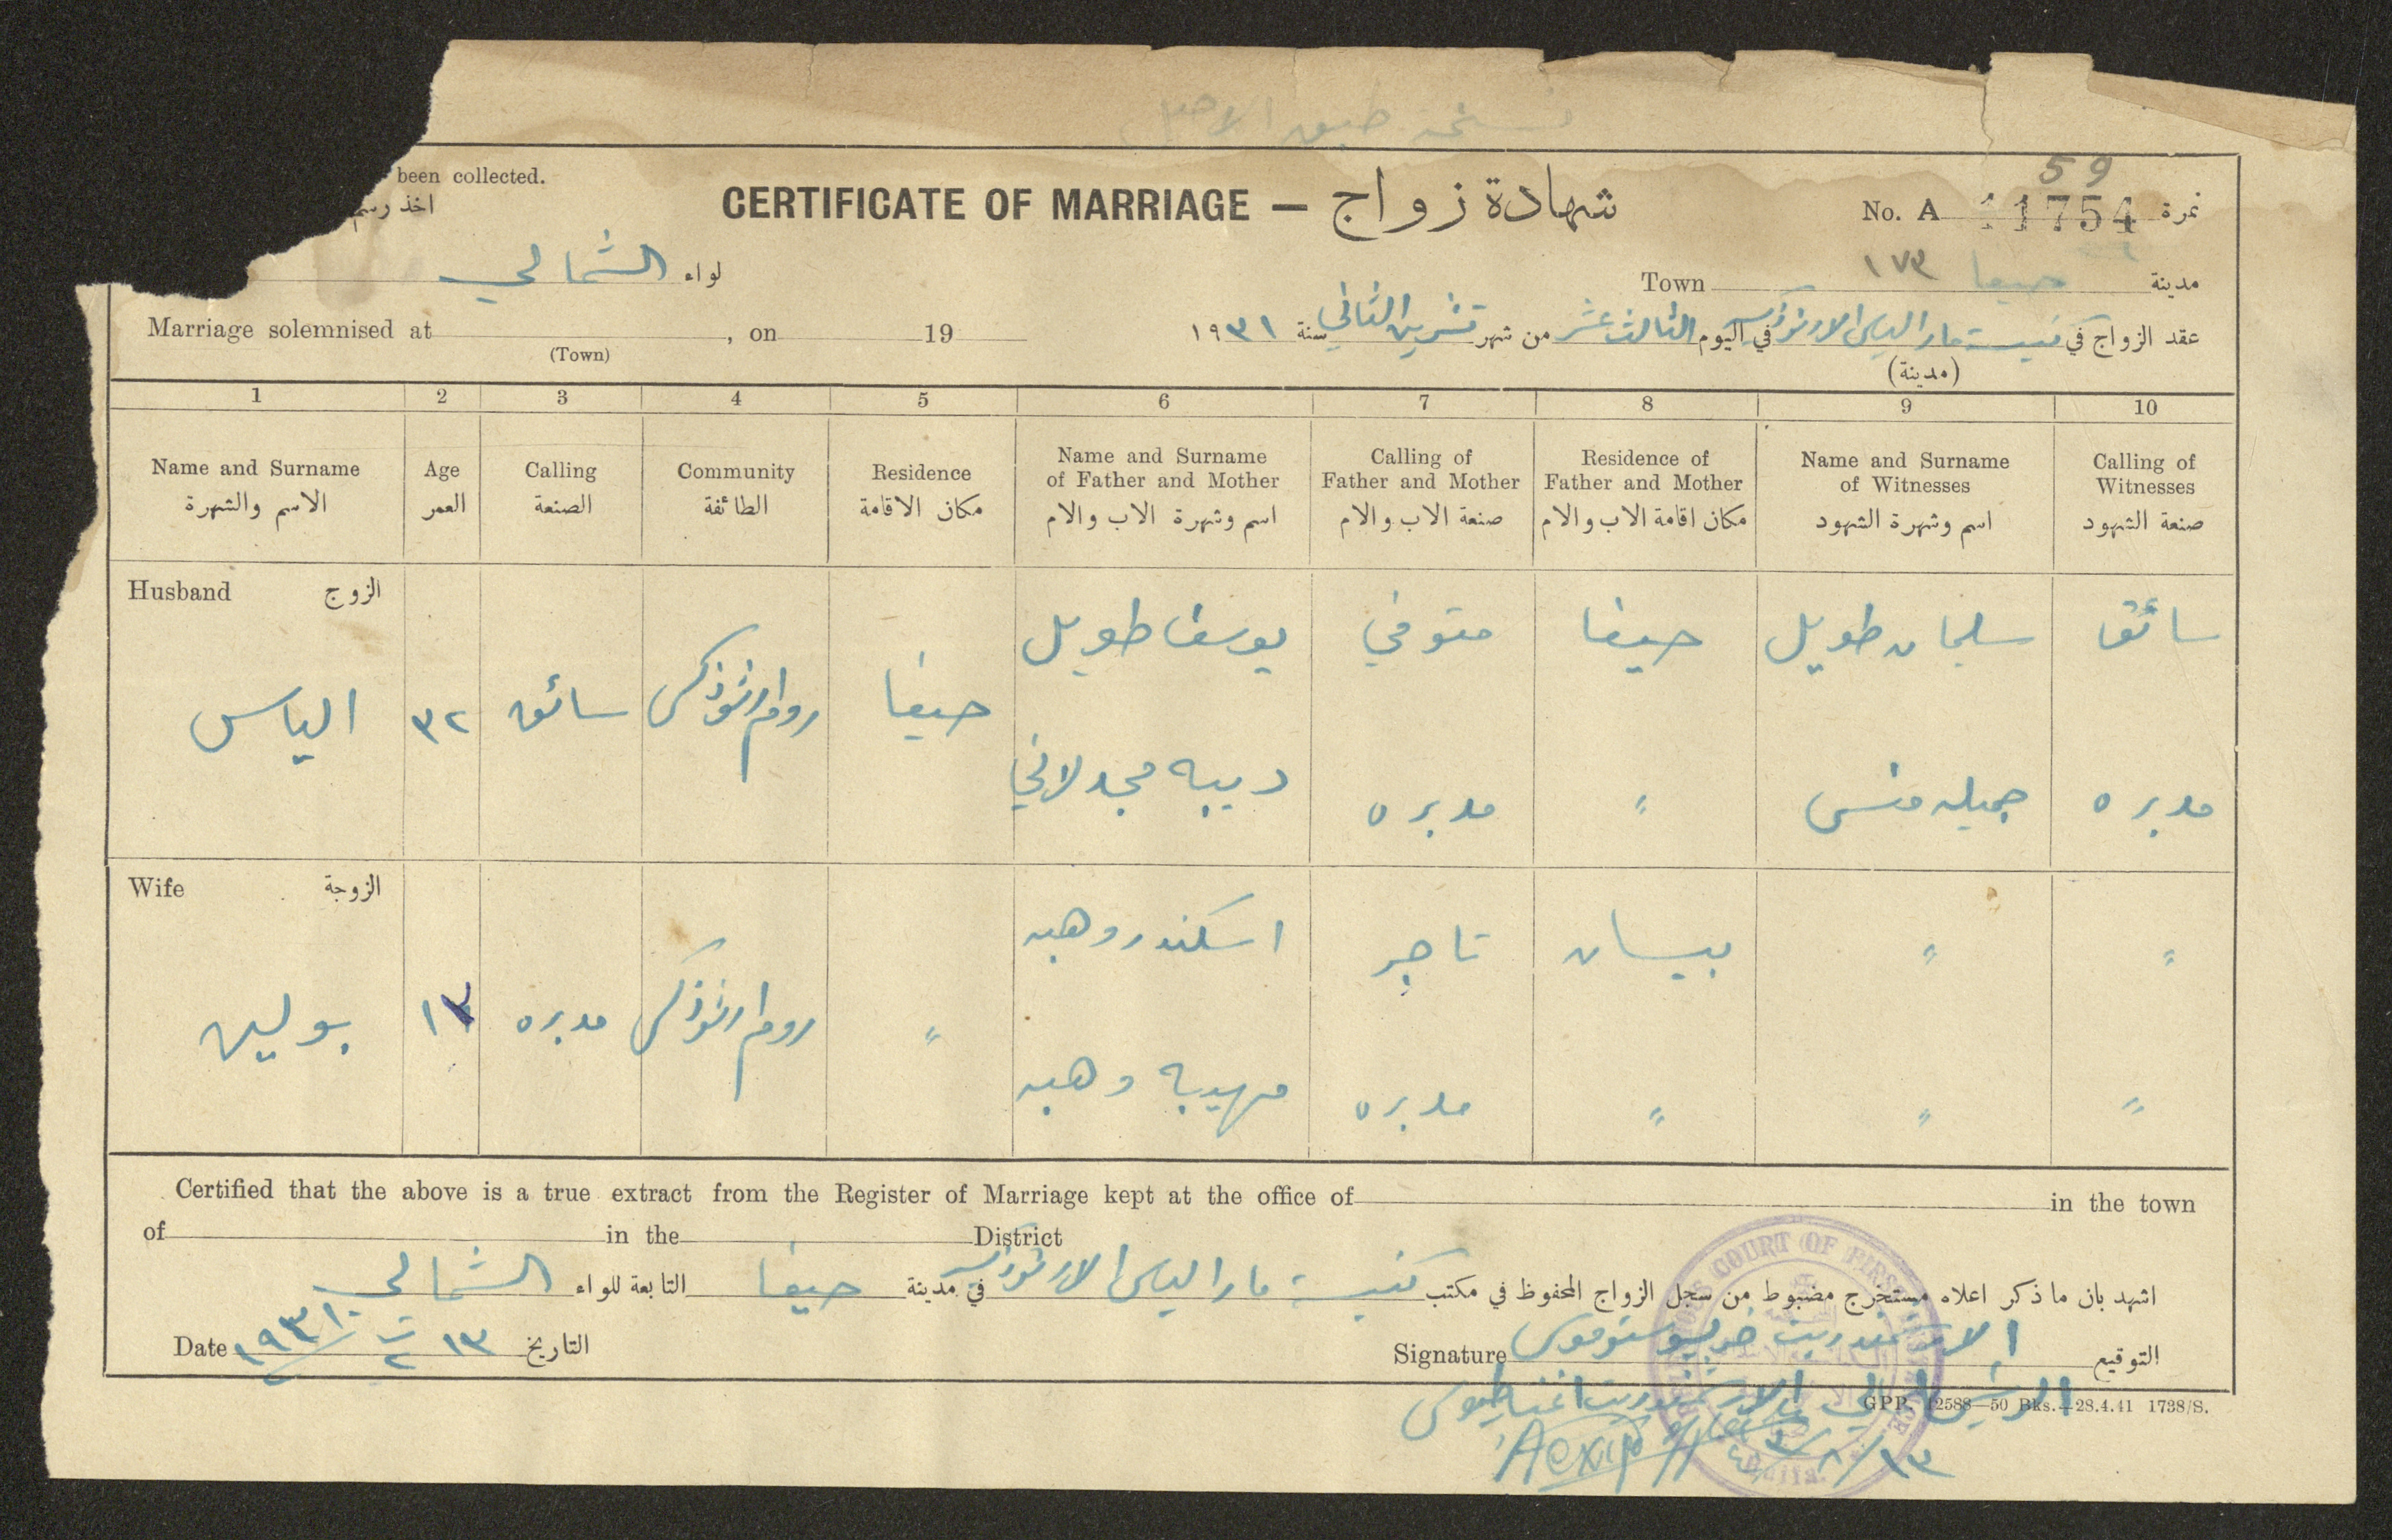 نسخة طبق الاصل
been collected.
اخذ رسم
CERTIFICATE OF MARRIAGE — شهادة زواج
59
No. A 11754 نمرة
لواء الشمالي
Town حيفا ١٧٣ مدينة
Marriage solemnised at , on 19
(Town)
عقد الزواج في كنيسة مار الياس الارثوذكس في اليوم الثالث عشر من شهر تشرين الثاني سنة ١٩٣١
(مدينة)
1 2 3 4 5 6 7 8 9 10
Name and Surname
الاسم والشهرة
Age
العمر
Calling
الصنعة
Community
الطائفة
Residence
مكان الاقامة
Name and Surname
of Father and Mother
اسم وشهرة الاب والام
Calling of
Father and Mother
صنعة الاب والام
Residence of
Father and Mother
مكان اقامة الاب والام
Name and Surname
of Witnesses
اسم وشهرة الشهود
Calling of
Witnesses
صنعة الشهود
Husband الزوج
الياس
٣٢
سائق
روم ارثوذكس
حيفا
يوسف طويل
ديبه مجدلاني
متوفي
مدبره
حيفا
"
سليمان طويل
جميله منسى
سائق
مدبره
Wife الزوجة
بولين
مدبره
روم ارثوذكس
"
اسكندر وهبه
مهيبه وهبه
تاجر
مدبره
بيسان
"
"
"
"
"
Certified that the above is a true extract from the Register of Marriage kept at the office of in the town
of in the District
اشهد بان ما ذكر اعلاه مستخرج مضبوط من سجل الزواج المحفوظ في مكتب كنيسة مار الياس الارثوذكس في مدينة حيفا التابعة للواء الشمالي
Date ١٣ ت٢ ١٩٣١ التاريخ
Signature الارشمندريت خريسوستوموس التوقيع
الرئيس الحالي الارشمندريت اغناطيوس
G.P.P. 12588—50 Bks.—28.4.41 1738/S.
COURT OF FIRST
Haifa